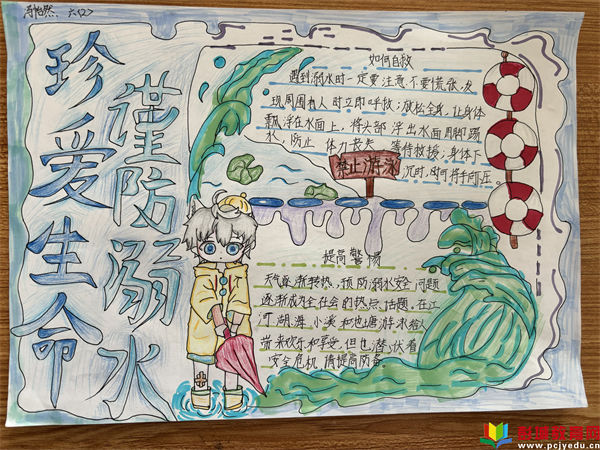 六(2)
珍爱生命
谨防溺水
如何自救
遇到溺水时一定要注意,不要慌张,发
现周围有人时立即呼救;放松全身,让身体
飘浮在水面上,将头部浮出水面,用脚踢
水,防止体力丧失,等待救援;身体下
沉时,可将手向下压。
禁止游泳
提高警惕
天气逐渐转热,预防溺水安全问题
逐渐成为全社会的热点话题,在江
河湖海、小溪和池塘游泳给人
带来欢乐和享受,但也潜伏着
安全危机,请提高防备。
www.pcjyedu.cn